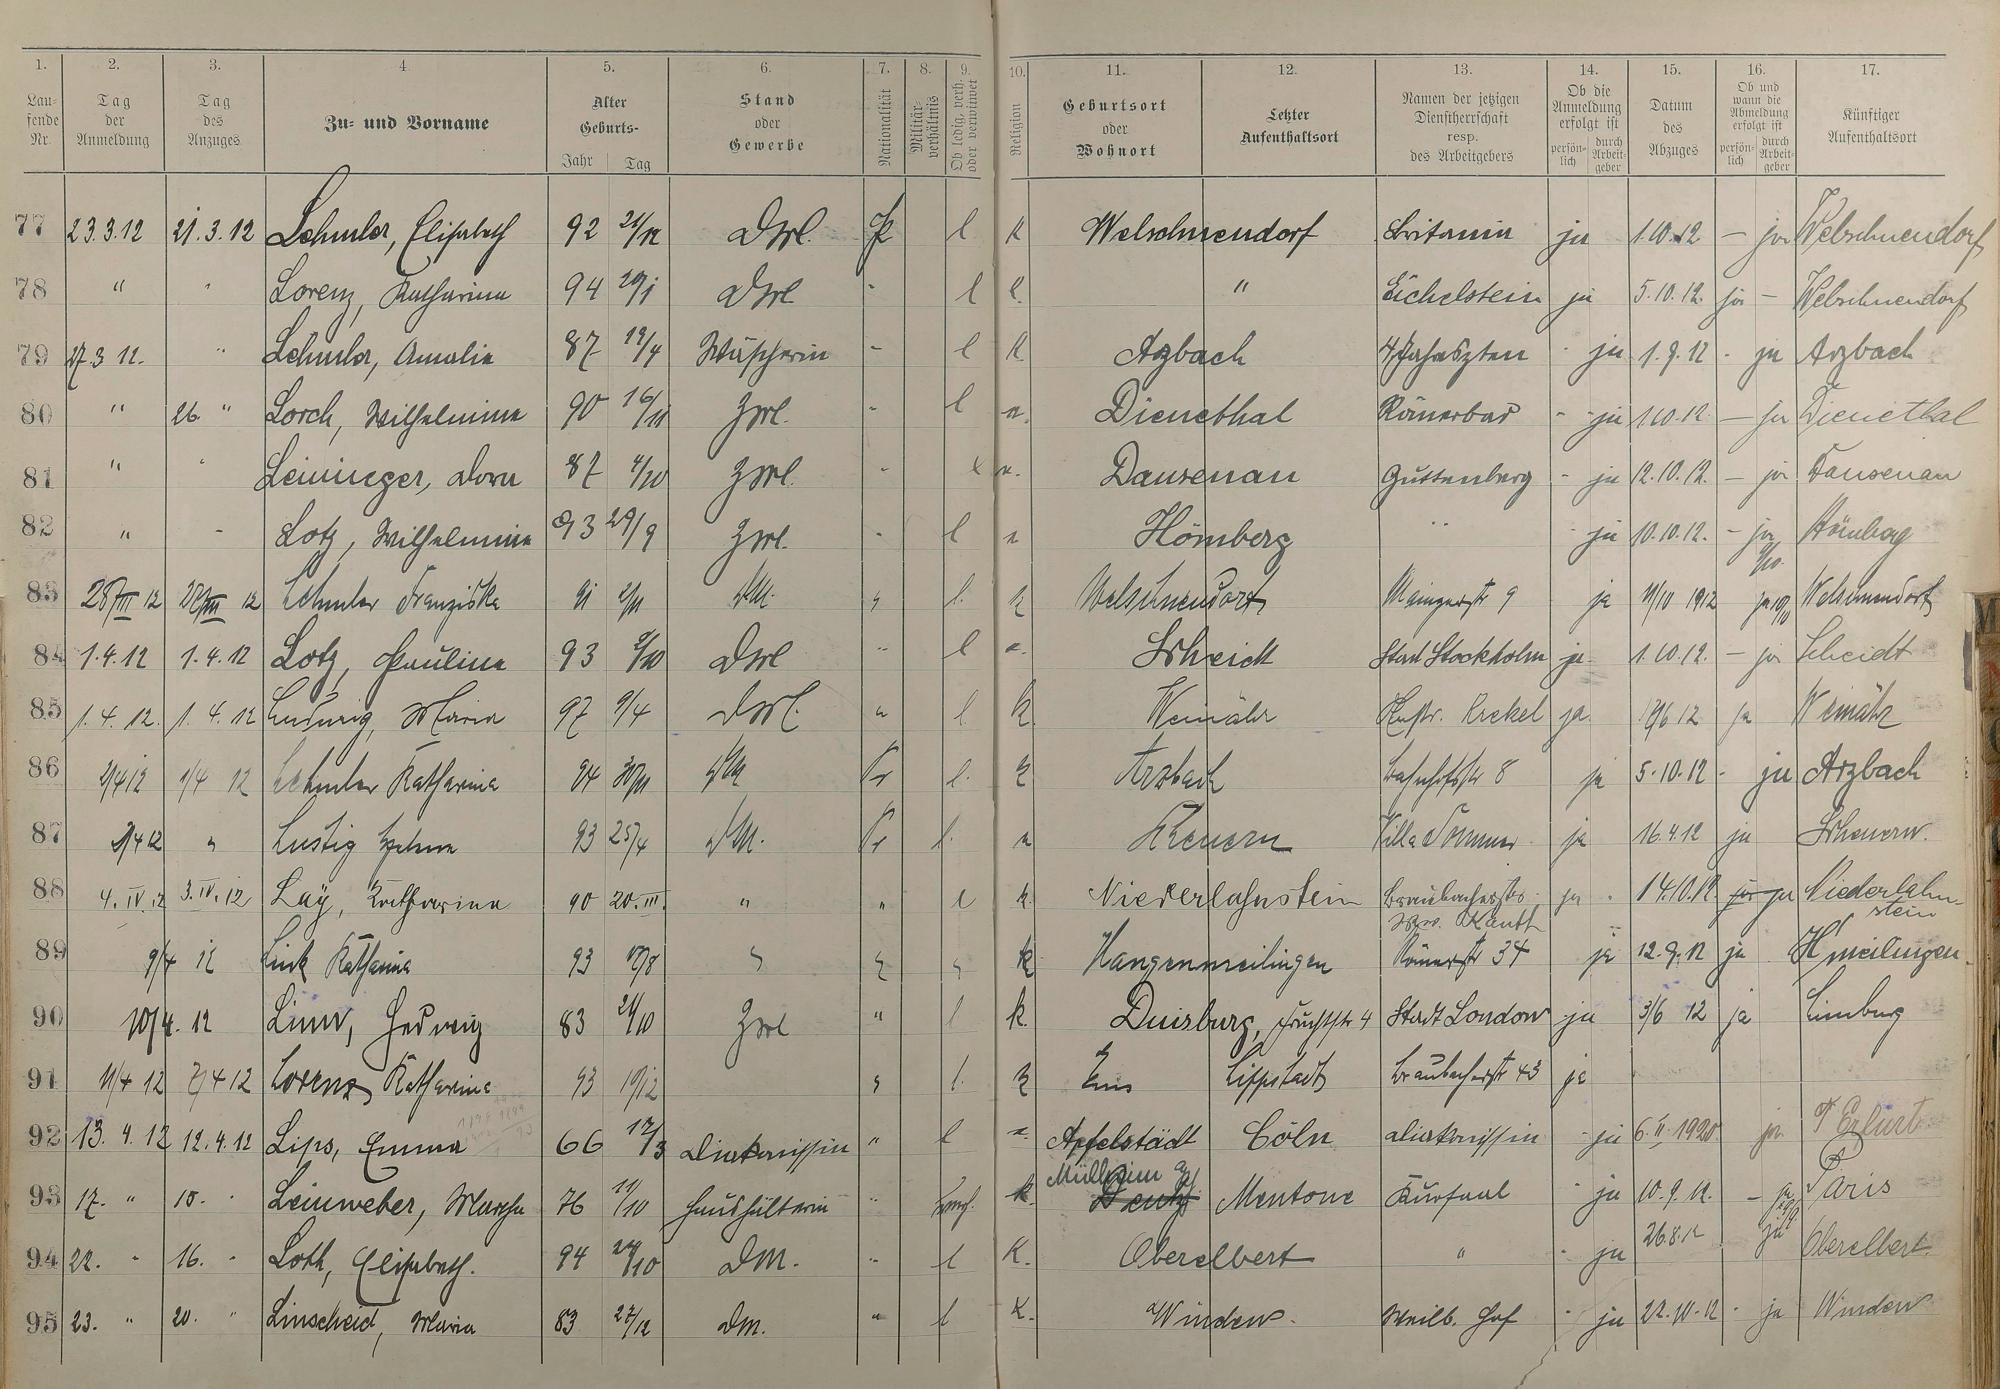 1. 2. 3. 4 5. 6. 7. 8. 9. 10. 11. 12. 13. 14. 15. 16. 17.
Lau-fende Nr. Tag der Anmeldung Tag des Anzuges Zu- und Vorname Alter Geburts- Jahr Tag Stand oder Gewerbe Nationalität Militär-verhältnis Ob ledig, verh. oder verwitwet Religion Geburtsort oder Wohnort Letzter Aufenthaltsort Namen der jetzigen Dienstherrschaft resp. des Arbeitgebers Ob die Anmeldung erfolgt ist persön-lich durch Arbeit-geber Datum des Abzuges Ob und wann die Abmeldung erfolgt ist persön-lich durch Arbeit-geber Künftiger Aufenthaltsort
77 23.3.12 21.3.12 Lehmler, Elisabeth 92 21/12 l k Welschneudorf Britania ja 1.10.12 – ja Welschneudorf
78 " " Lorenz, Katharina 94 l " Eichelstein ja 5.10.12. ja – Welschneudorf
79 27.3 12. " Lehmler, Amalie 87 19/4 Wäscherin - l k Arzbach 4 Jahreszten - ja 1.9.12 - ja Arzbach
80 " 26. " Lorch, Wilhelmine 90 16/11 - l Dienethal Römerbad - ja 1.10.12. – ja Dienethal
81 " " Leinineger, Dora 87 4/10 - Dausenau Guttenberg - ja 12.10.12. – ja Dausenau
82 " - Lotz, Wilhelmine 93 29/9 - l Hömberg " - ja 10.10.12. – ja Hömberg
83 28/III 12 12 Lehmler Franziska 91 2/11 DM. " l. k Welschneudorf Mainzerstr 9 ja 11/10 1912 ja Welschneudorf
84 1.4.12 1.4.12 Lotz, Pauline 93 " l Scheidt Stadt Stockholm ja 1.10.12. – ja Scheidt
85 1.4.12. 1.4.12 Ludwig, Maria 97 9/4 " l k Weinähr ja 12 ja Weinähr
86 2/4 12 1/4 12 Lehmler Katharina 94 30/11 DM Pr l. k Arzbach Bahnhofstr 8 ja 5.10.12 - ja Arzbach
87 4 12 " Lustig 93 25/4 DM. Pr l. Villa Sommer ja 16.4.12 ja Scheuern.
88 4.IV.12 3.IV.12 Lay, Katharina 90 20.III. " " l k. Niederlahnstein Braubacherstr. ja - 14.10.12. ja Niederlahn-stein
89 9/4 12 Link Katharina 93 " k Hangenmeilingen Römerstr 34 ja 12.9.12 ja Hmeilingen.
90 10/4. 12 Linn, Hedwig 83 21/10 " l k. Duisburg, Fruchtstr 4 Stadt London ja 3/6 12 ja Limburg
91 11/4 12 4 12 Lorenz Katharina 93 " l. k Ems Lippstadt Braubacherstr 43 ja
92 13.4.12 12.4.12 Lips, Emma 66 12/3 Diakonissin " l Apfelstädt Cöln Diakonissin - ja 6.II.1920 ja Erfurt
93 17. " 15. " Leinweber, Martha 76 11/10 Haushälterin " k. Mülheim Mentone Kursaal - ja 10.9.12. – ja Paris
94 22. " 16. " Loth, Elisabeth. 94 24/10 DM. " l K. Oberelbert " - ja 26.8.12 ja Oberelbert
95 23. " 20. " Linscheid, Maria 83 27/12 DM. " l K. Winden. Weilb. Hof - ja 22.10.12 - ja Winden